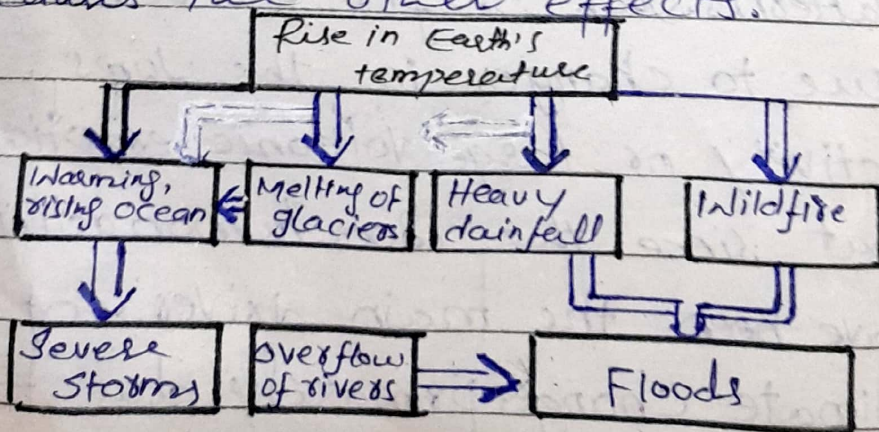 other effects.
Rise in Earth's
temperature
Warming,
rising ocean
Melting of
glaciers
Heavy
rainfall
Wildfire
Severe
Storms
overflow
of rivers
Floods